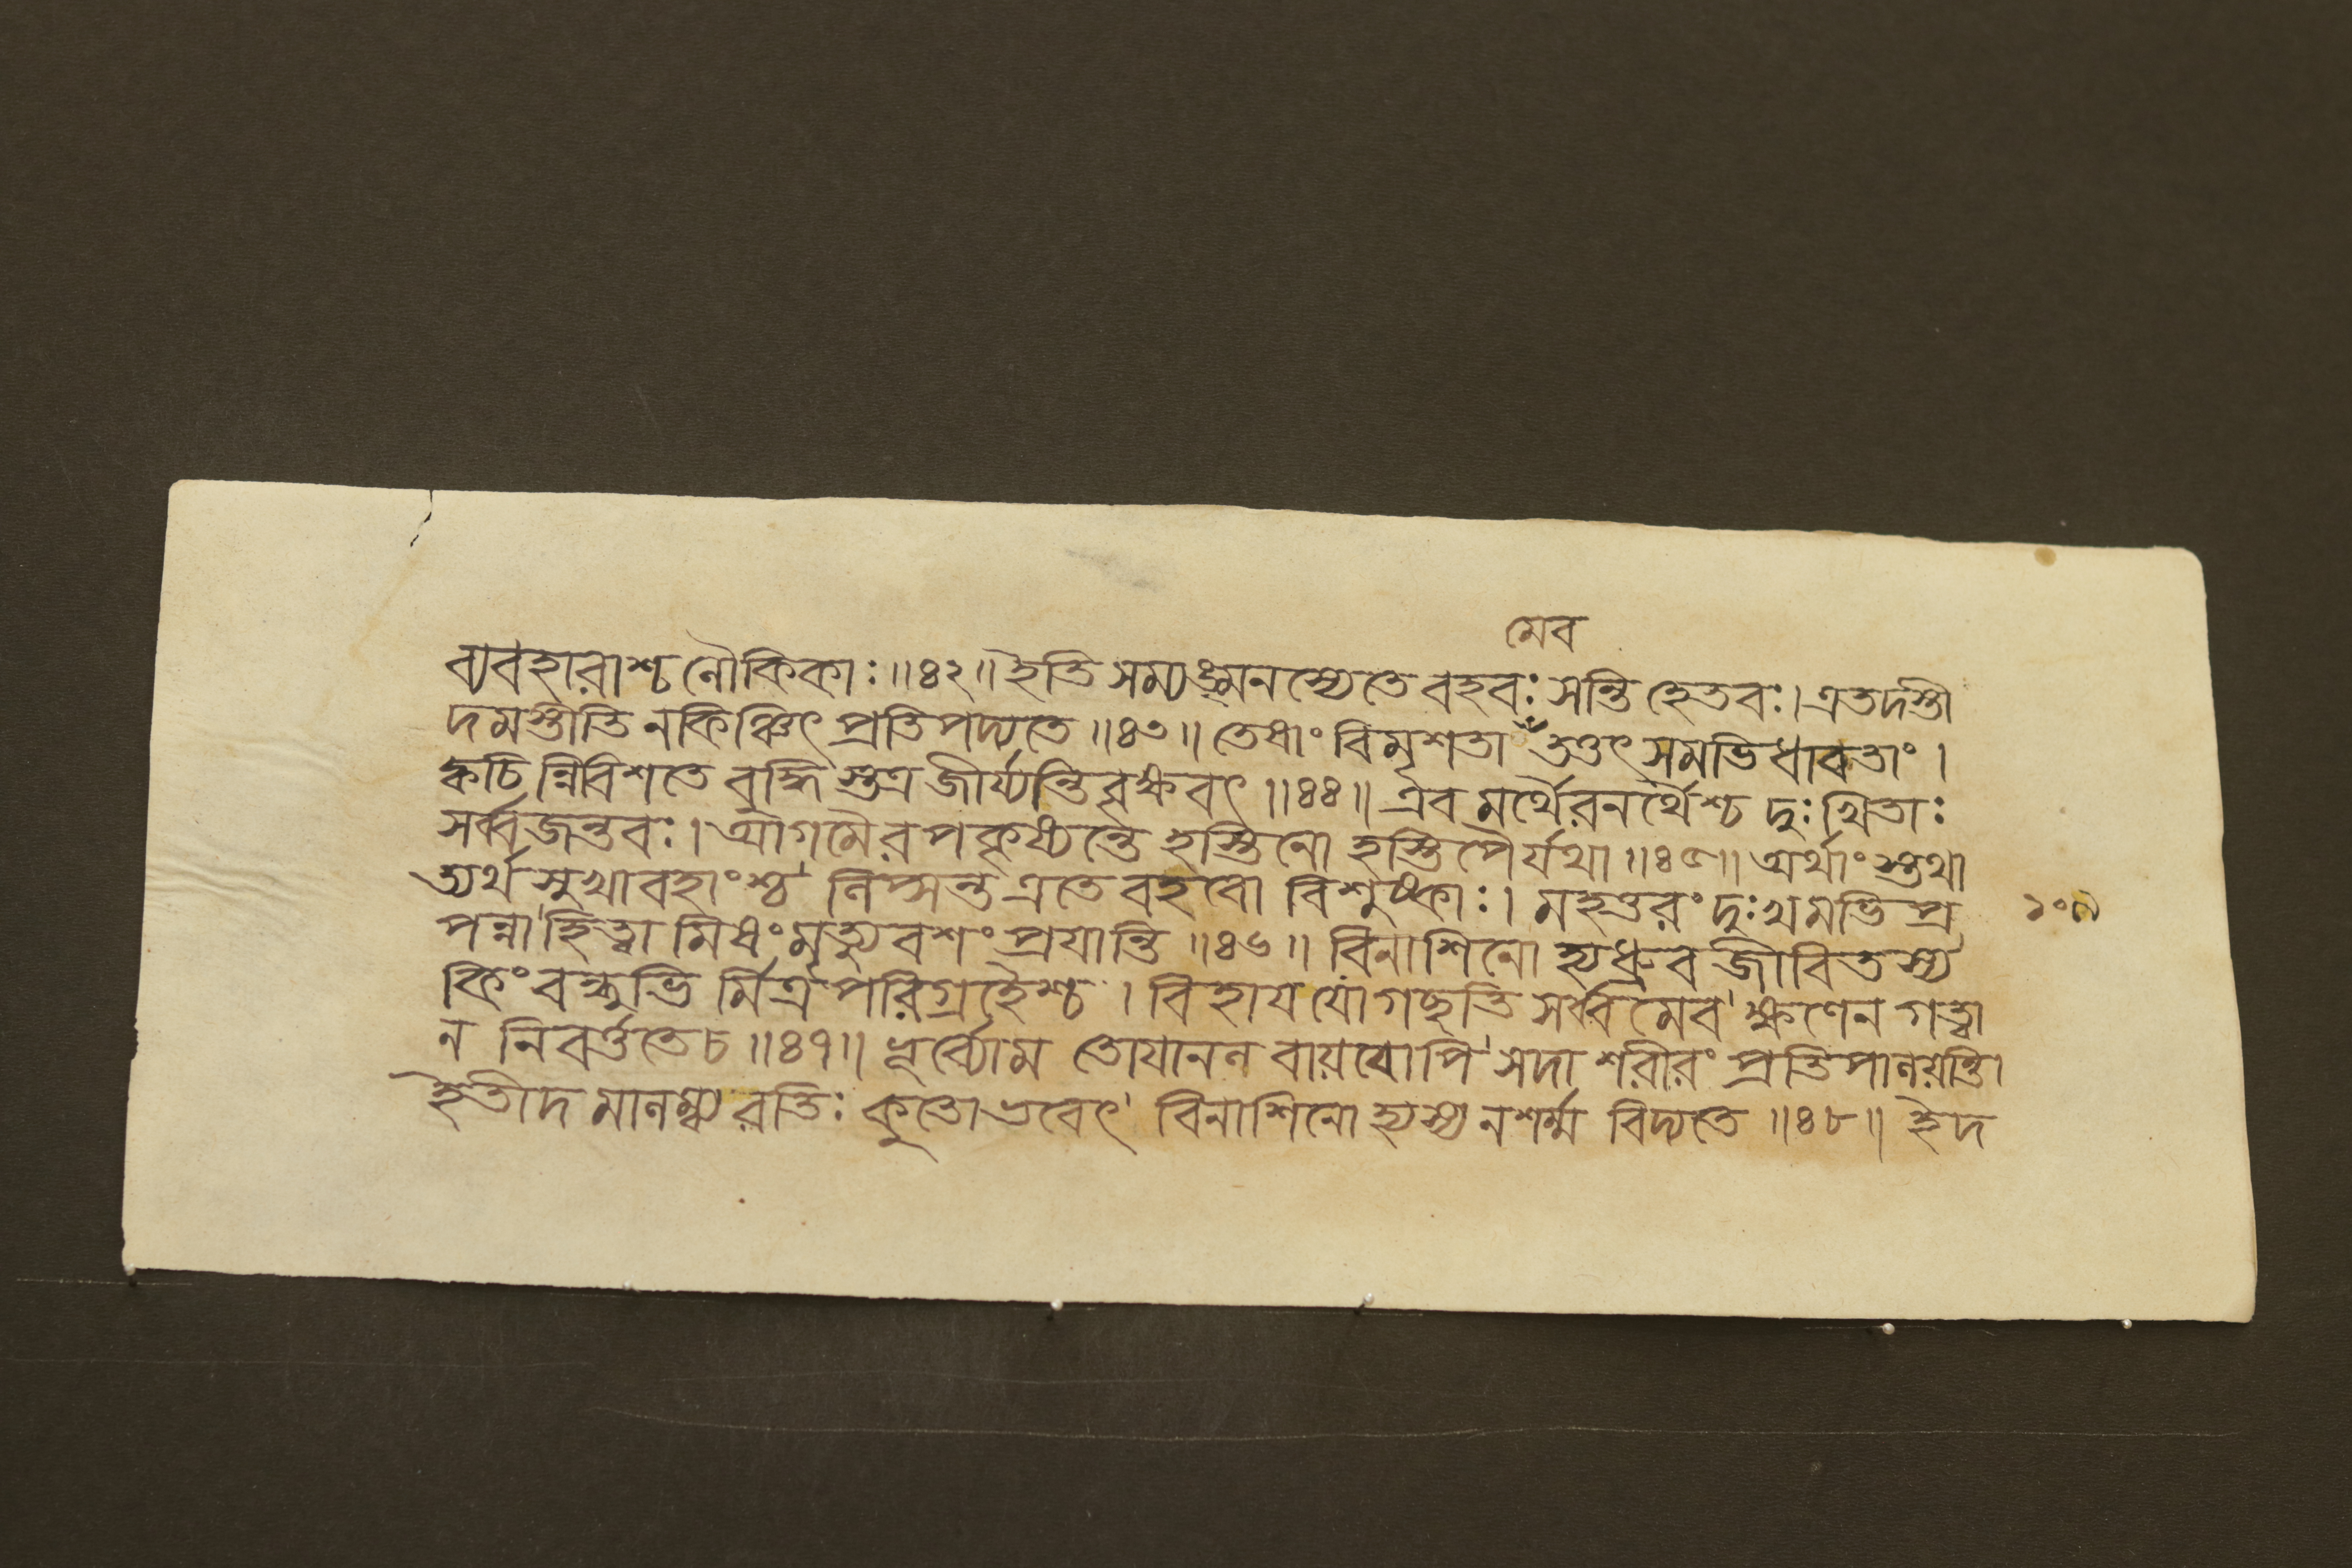 মেব
ব্যবহারাশ্চ লৌকিকাঃ ॥৪২॥ ইতি সম্যঙ্মনস্যেতে বহবঃ সন্তি হেতবঃ। এতদস্তী
দমস্তীতি নকিঞ্চিৎ প্রতিপদ্যতে ॥৪৩॥ তেষাং বিমৃশতা তত্তৎ সমভিধাবতাং ।
ক্বচিন্নিবিশতে বুদ্ধি স্তত্র জীর্য্যন্তি বৃক্ষবৎ ॥৪৪॥ এব মর্থৈরনর্থৈশ্চ দুঃখিতাঃ
সর্ব্বজন্তবঃ। আগমৈরপকৃষ্যন্তে হস্তিনো হস্তিপৈর্যথা ॥৪৫॥ অর্থাং স্তথা
ত্যর্থ সুখাবহাংশ্চ লিপ্সন্ত এতে বহবো বিশুষ্কাঃ। মহত্তরং দুঃখমভিপ্র
পন্না হিত্বা মিষং মৃত্যুবশং প্রযান্তি ॥৪৬॥ বিনাশিনো হ্যধ্রুব জীবিতস্য
কিং বন্ধুভি র্মিত্রপরিগ্রহৈশ্চ । বিহায যো গচ্ছতি সর্ব্বমেব ক্ষণেন গত্বা
ন নিবর্ত্ততে চ ॥৪৭॥ ভূর্ব্যোম তোযানল বায়বোপি সদা শরীরং প্রতিপালয়ন্তি।
ইতীদ মালক্ষ্য রতিঃ কুতো ভবেৎ বিনাশিনো হ্যস্য নশর্ম্ম বিদ্যতে ॥৪৮॥ ইদ